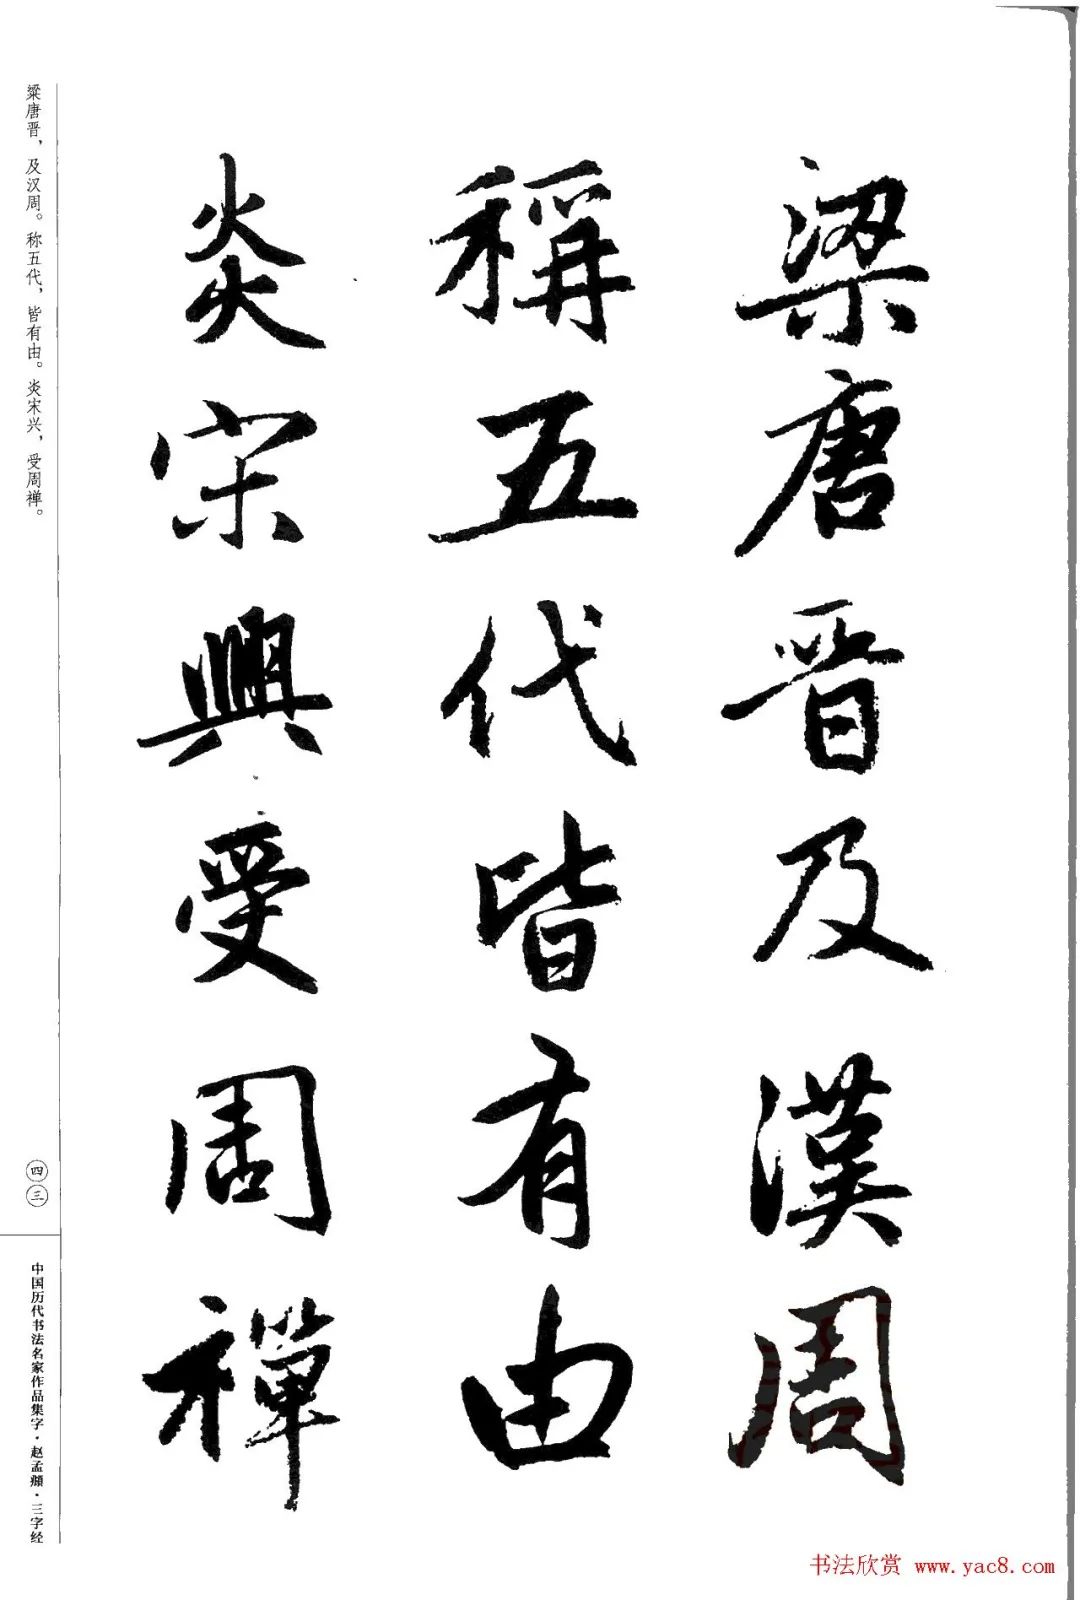 梁唐晋及漢周
稱五代皆有由
炎宋興受周禪
粱唐晋，及汉周。称五代，皆有由。炎宋兴，受周禅。
四三
中国历代书法名家作品集字·赵孟頫·三字经
书法欣赏 www.yac8.com